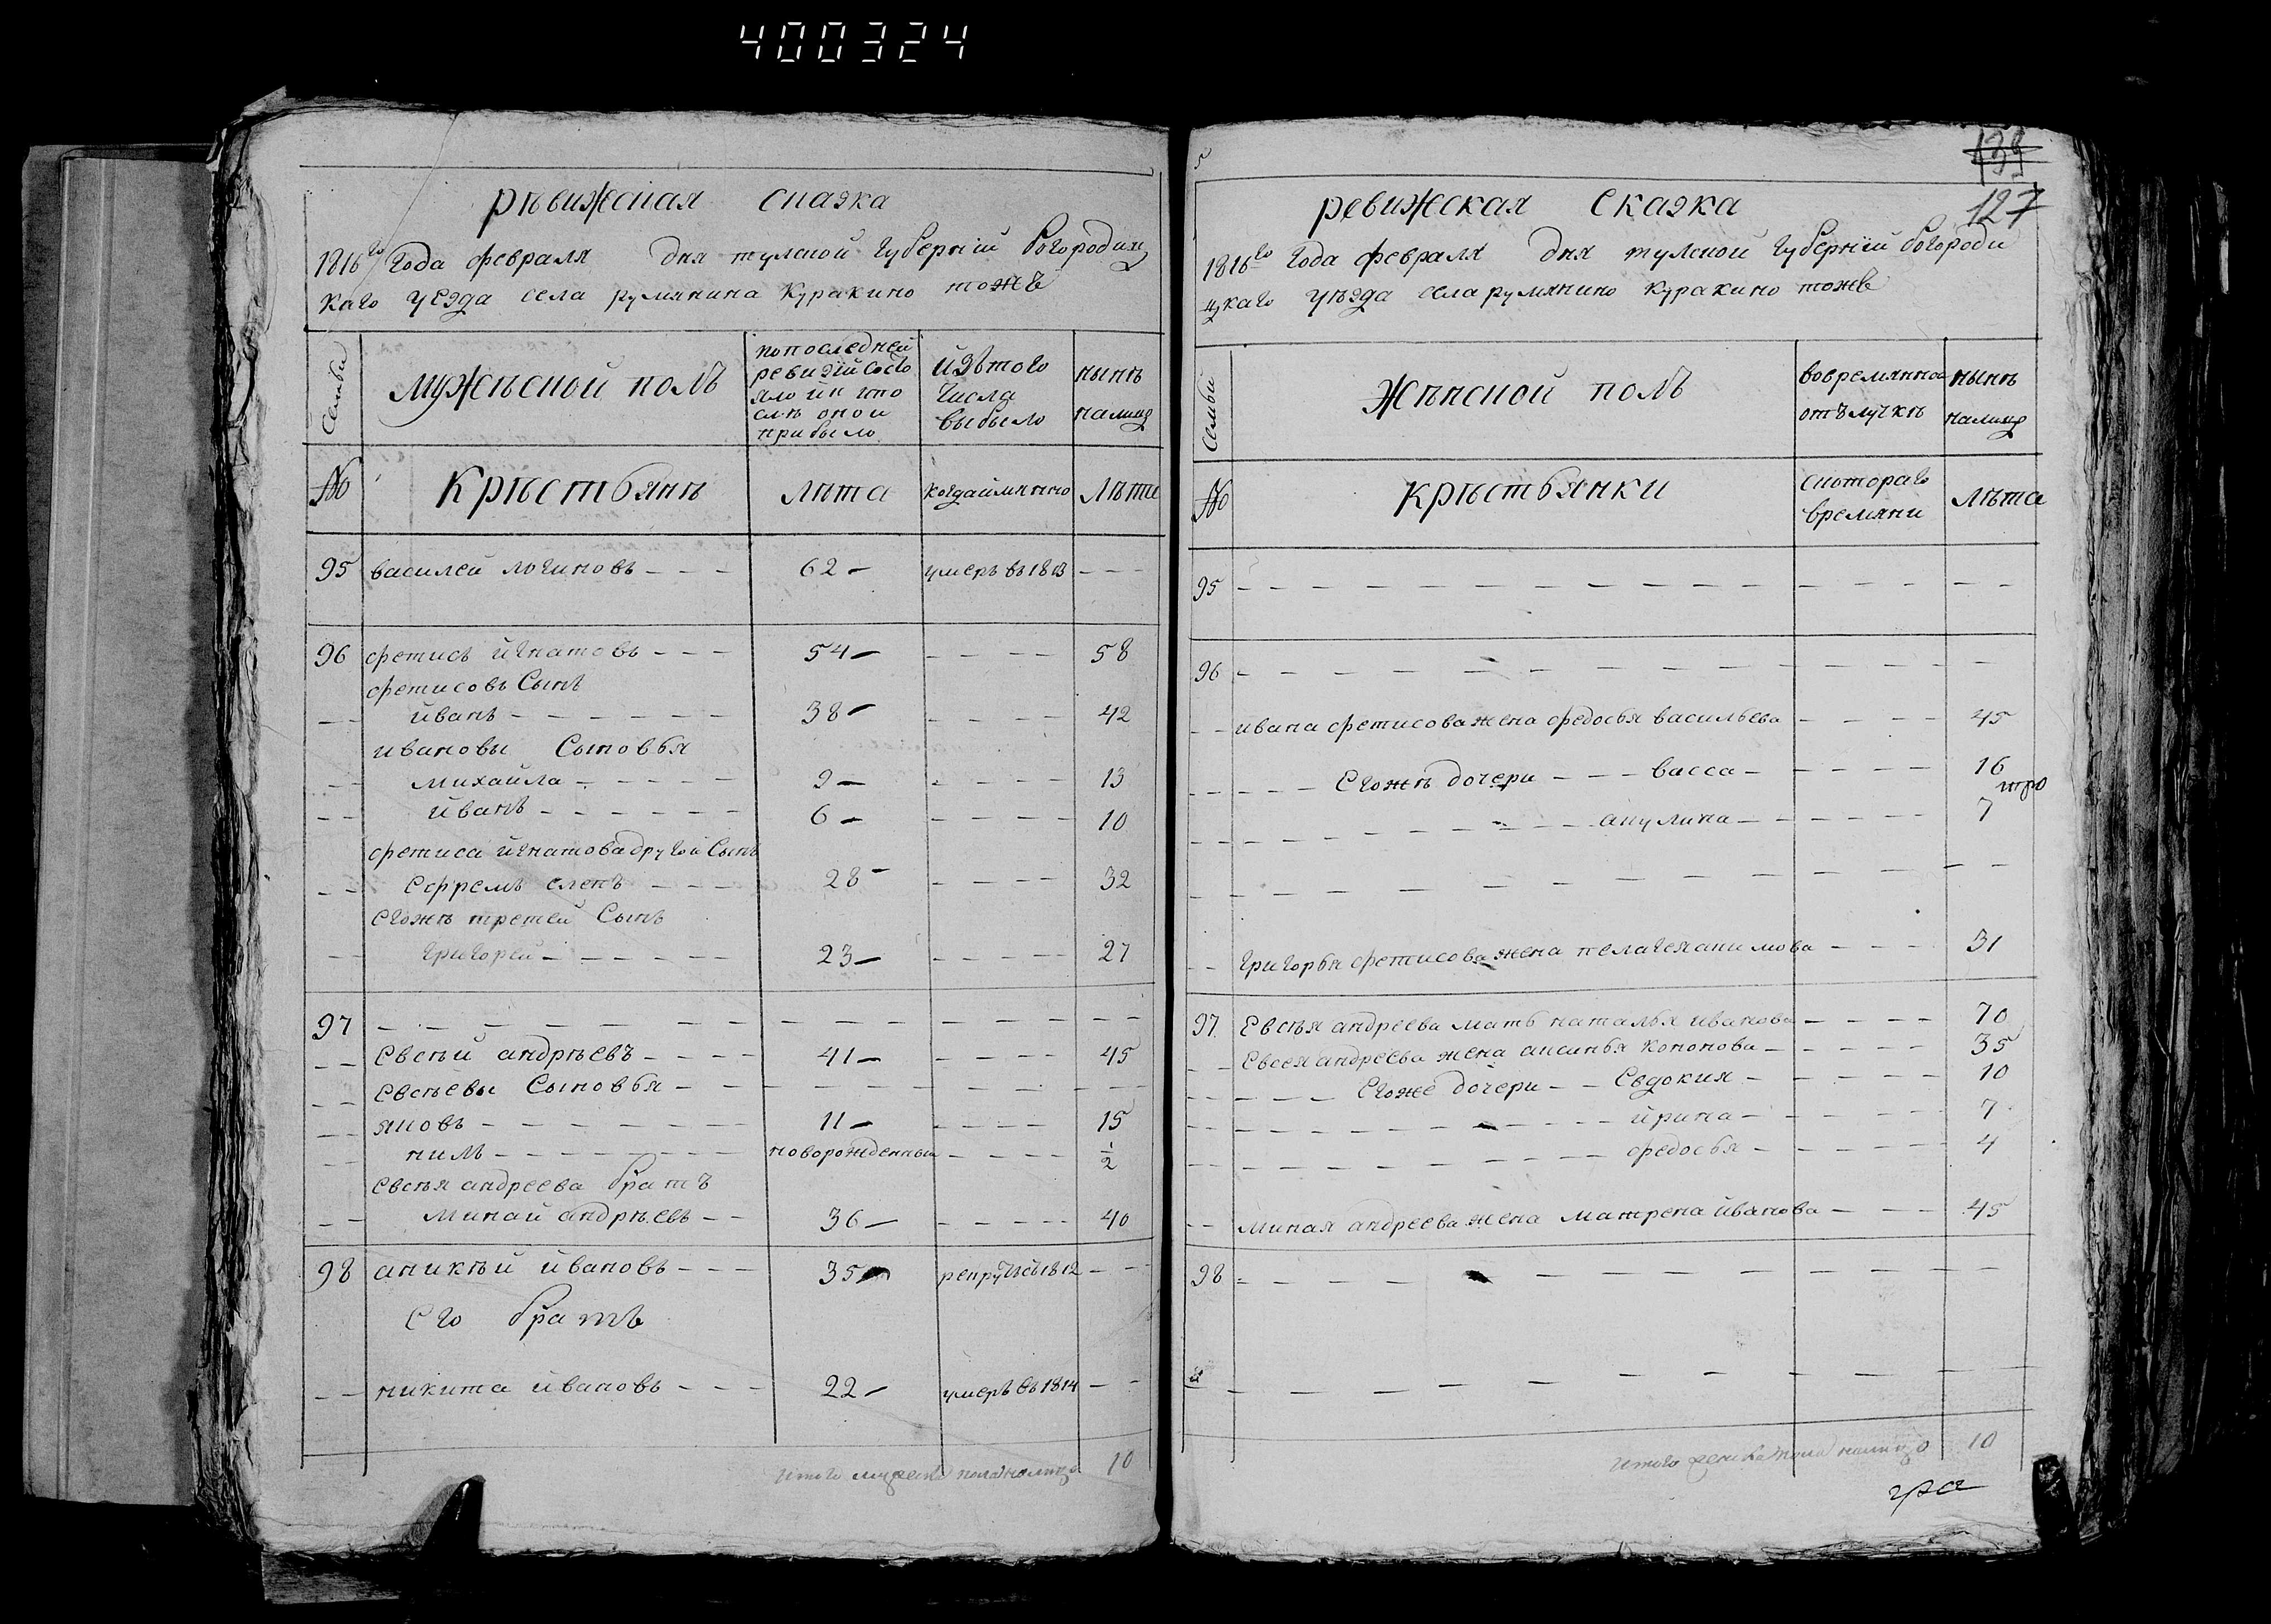 400324
рѣвижсная сказка
1816го года февраля дня тулской губернiи богородиц
каго уезда села румянина Куракино тожъ
Семьи
мужѣской полъ
по последней
ревизiи состо
яло и что
слѣ оной
прибыло
изъ того
числа
выбыло
нынѣ
на лицо
№
Крѣстьянѣ
лѣта
когда имянно
лѣта
95 василей логиновъ - - - 62 - умеръ въ 1813 - - -
96 фетисъ игнатовъ - - - 54 - - - - - 58
фетисовъ Сынъ
иванъ - - - - - 38 - - - - - 42
ивановы Сыновья
михайла - - - - - 9 - - - - - 13
иванъ - - - - - 6 - - - - - 10
фетиса игнатова другой Сынъ
Ефремъ слепъ - - - 28 - - - - - 32
Егожъ третей Сынъ
григорей - - - - - 23 - - - - - 27
97 - - - - - - - - - - - - -
Евсѣй андрѣевъ - - - - 41 - - - - - 45
Евсѣевы Сыновья - - - - - - - - -
яковъ - - - - - - 11 - - - - - 15
нилъ - - - - - - новорожденный - - - - 1/2
Евсѣя андреева братъ
минай андрѣевъ - - 36 - - - - - 40
98 аникѣй ивановъ - - - 35 - рекрутъ съ 1812 - -
Его братъ
никита ивановъ - - - 22 - умеръ въ 1814 - -
итого мужеска пола налицо 10
139
127
ревижская сказка
1816го года февраля дня тулской губернiи богороди
цкаго уѣзда села румянино куракино тожъ
Семьи
Жѣнской полъ
во времянной
отълучкѣ
нынѣ
налицо
№
Крѣстьянки
с котораго
времяни
лѣта
95 - - - - - - - - - - - - -
96 - - - - - - - - - - - - -
ивана фетисова жена федосья васильева - - - - 45
Егожъ дочери - - - васса - - - - - 16
акулина - - - - - 7
- - - - - - - - - - - - -
григорья фетисова жена пелагея акимова - - - 31
97 Евсѣя андреева мать наталья иванова - - - - 70
Евсея андреева жена аксинья кононова - - - - - 35
Егоже дочери - - Евдокия - - - - - 10
ирина - - - - - 7
федосья - - - - - 4
миная андреева жена матрена иванова - - - 45
98 - - - - - - - - - - - - -
- - - - - - - - - - - - -
итого женска пола налицо 10